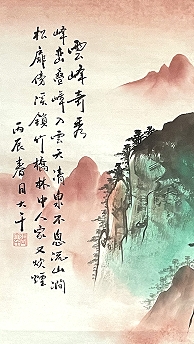 雲峰奇秀
峰峦叠峰入雲天清泉不息流山澗
松扉傍溪鎖竹橋林中人家又炊煙
丙辰春月大千